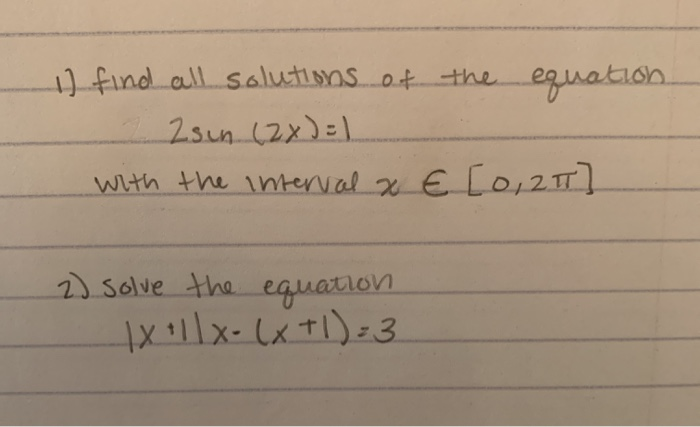 1) find all solutions of the equation
2sin (2x)=1
with the interval x ∈ [0,2π]
2) solve the equation
|x+1|x-(x+1)=3